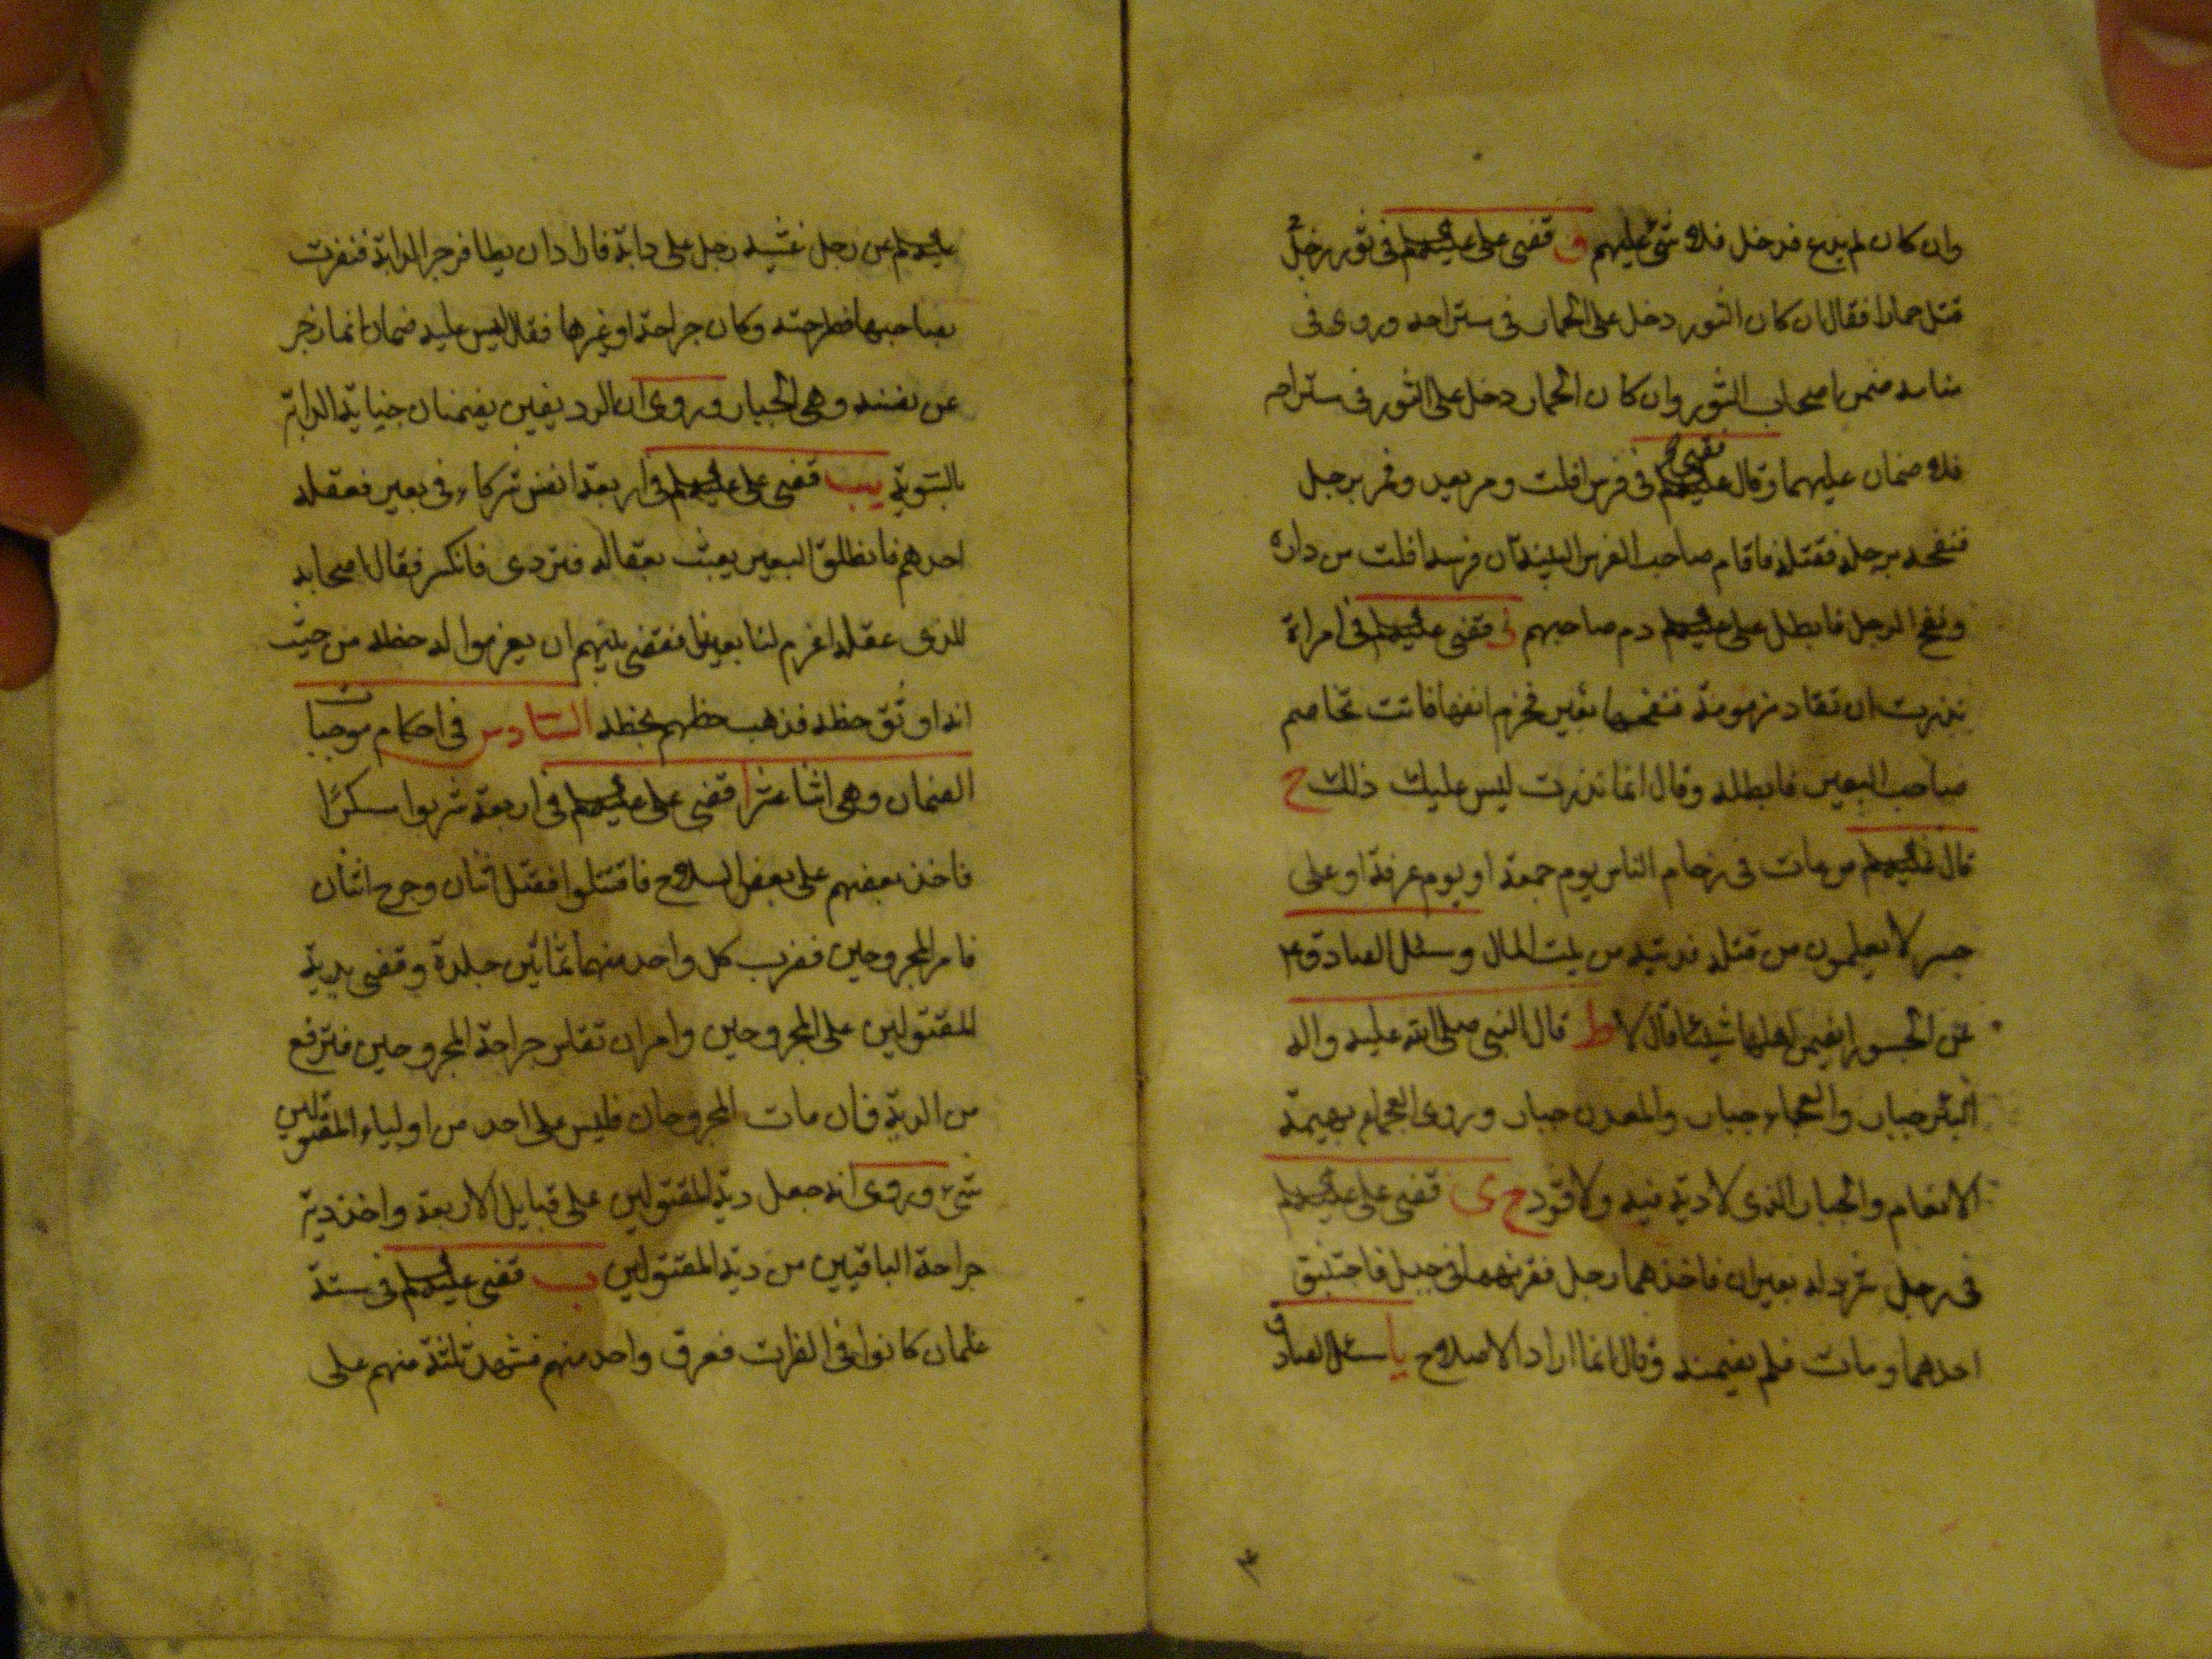 وان كان لم يدع فدخل فلا شئ عليهم و قضى على عليه السلم فى ثور رجل
قتل حمارا فقال ان كان الثور دخل على الحمار فى مستراحه وروى فى
منامه ضمن اصحاب الثور وان كان الحمار دخل على الثور فى مستراحه
فلا ضمان عليهما وقضى عليه السلم فى فرس افلت ومر يعدو ومر برجل
فنفحه برجله فقتله فاقام صاحب الفرس البينة ان فرسه افلت من داره
ونفح الرجل فابطل على عليه السلم دم صاحبهم ز قضى عليه السلم فى امراة
نذرت ان تقاد مزمومة فنفحها بعير فخرم انفها فاتت تخاصم
صاحب البعير فابطله وقال انما نذرت ليس عليك ذلك ح
قال عليه السلم من مات فى زحام الناس يوم جمعة او يوم عرفة او على
جسر لا يعلمون من قتله فديته من بيت المال وسئل الصادق ع
عن الجسور ايضمن اهلها شيئا قال لا ط قال النبى صلى الله عليه واله
البئر جبار والعجماء جبار والمعدن جبار وروى العجماء بهيمة
الانعام والجبار الذى لا دية فيه ولا قود ح ى قضى على عليه السلم
فى رجل شرد له بعيران فاخذهما رجل فقرنهما فى حبل فاختنق
احدهما ومات فلم يضمنه وقال انما اراد الاصلاح يا سئل الصادق
عليه السلم عن رجل غشيه رجل على دابة فاراد ان يطا فزجر الدابة فنفرت
بصاحبها فطرحته وكان جراحة او غيرها فقال ليس عليه ضمان انما زجر
عن نفسه وهى الجبار وروى ان الرديفين يضمنان جناية الدابة
بالسوية يب قضى على عليه السلم فى اربعة انفس شركاء فى بعير فعقله
احدهم فانطلق البعير يعبث بعقاله فتردى فانكسر فقال اصحابه
للذى عقله اغرم لنا بعيرنا فقضى بينهم ان يغرموا له حظه من حيث
انه اوثق حظه فذهب حظهم بحظه السادس فى احكام موجبات
الضمان وهى اثنا عشر ا قضى على عليه السلم فى اربعة شربوا مسكرًا
فاخذ بعضهم على بعض السلاح فاقتتلوا فقتل اثنان وجرح اثنان
فامر المجروحين فضرب كل واحد منهما ثمانين جلدة وقضى بدية
المقتولين على المجروحين وامر ان تقاس جراحة المجروحين فترفع
من الدية فان مات المجروحان فليس على احد من اولياء المقتولين
شئ وروى انه جعل دية المقتولين على قبايل الاربعة واخذ دية
جراحة الباقيين من دية المقتولين ب قضى عليه السلم فى ستة
غلمان كانوا فى الفرات فغرق واحد منهم فشهد ثلثة منهم على